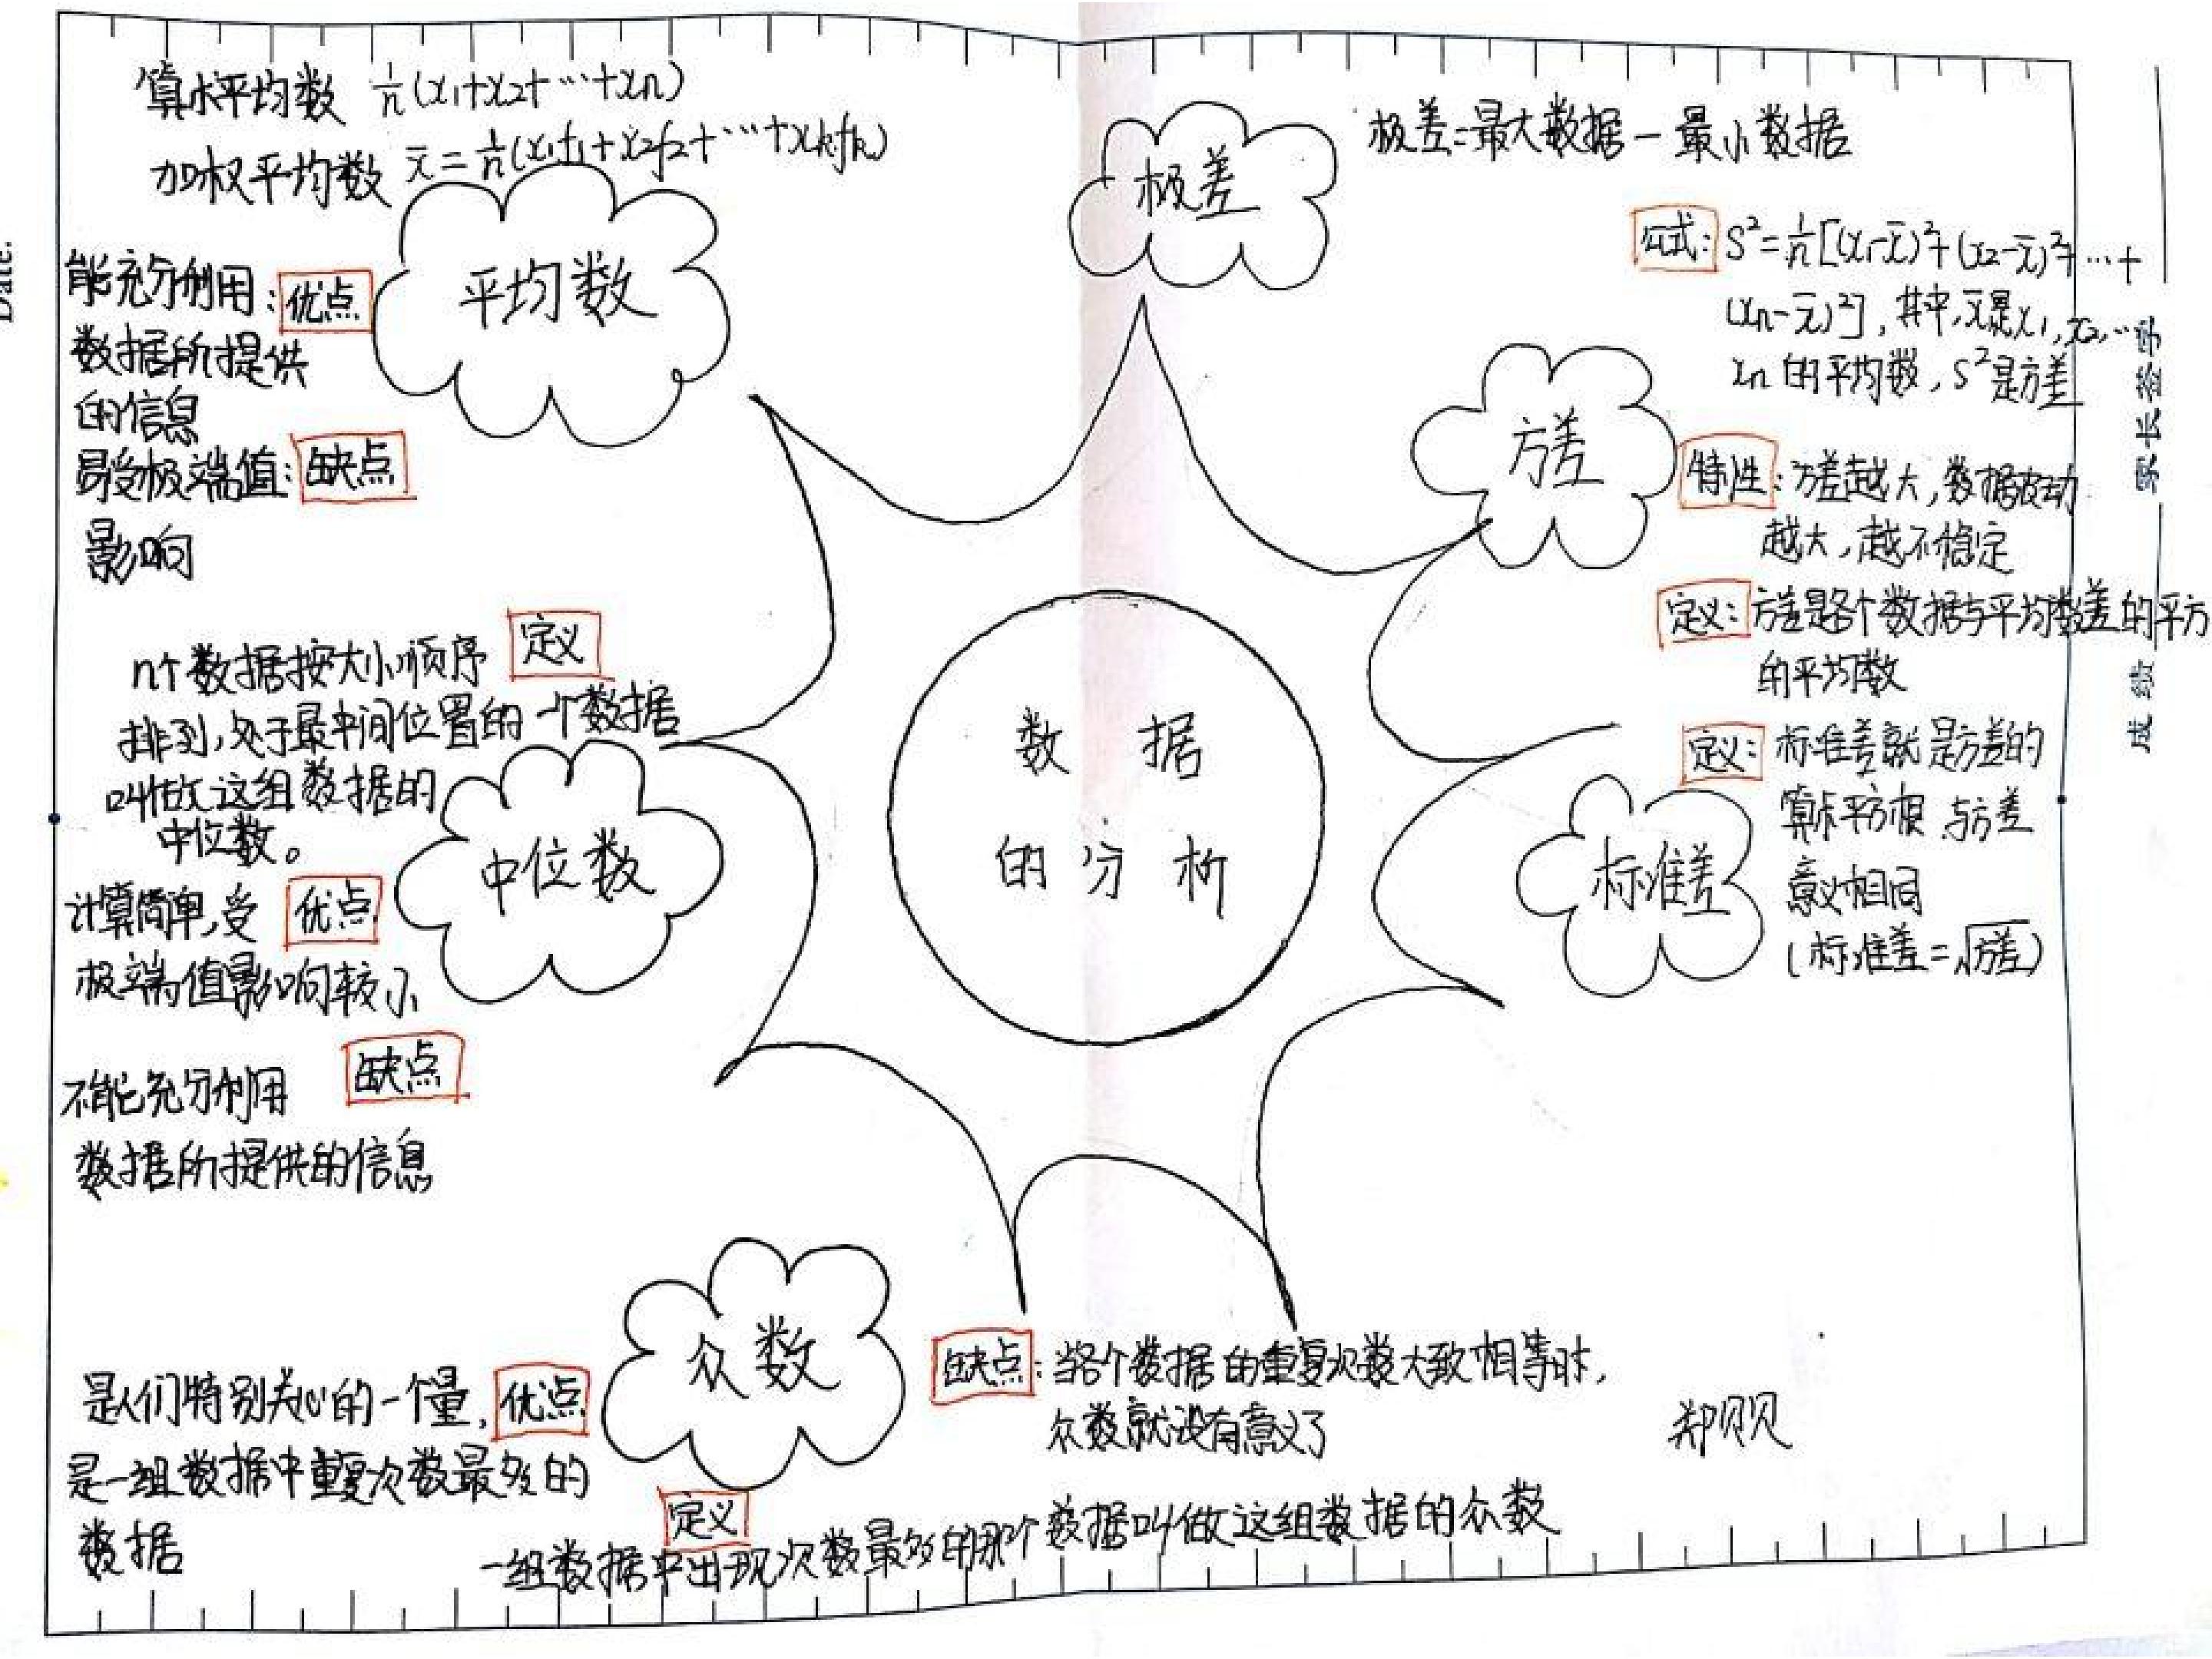 算术平均数 1/n(x₁+x₂+…+xₙ)
加权平均数 x̄=1/n(x₁f₁+x₂f₂+…+xₖfₖ)
平均数
能充分利用：优点
数据所提供
的信息
易受极端值：缺点
影响
定义
n个数据按大小顺序
排列，处于最中间位置的一个数据
叫做这组数据的
中位数。
中位数
计算简单，受 优点
极端值影响较小
不能充分利用 缺点
数据所提供的信息
众数
是人们特别关心的一个量， 优点
是一组数据中重复次数最多的
数据
定义
一组数据中出现次数最多的那个数据叫做这组数据的众数
缺点：当各个数据的重复次数大致相等时，
众数就没有意义了
数据
的分析
极差
极差=最大数据－最小数据
方差
公式：S²=1/n[(x₁-x̄)²+(x₂-x̄)²+…+
(xₙ-x̄)²]，其中，x̄是x₁，x₂，…
xₙ的平均数，S²是方差
特性：方差越大，数据波动
越大，越不稳定
定义：方差是各个数据与平均数差的平方
的平均数
标准差
定义：标准差就是方差的
算术平方根 与方差
意义相同
(标准差=√方差)
郑贝贝
Date.
成绩 家长签字